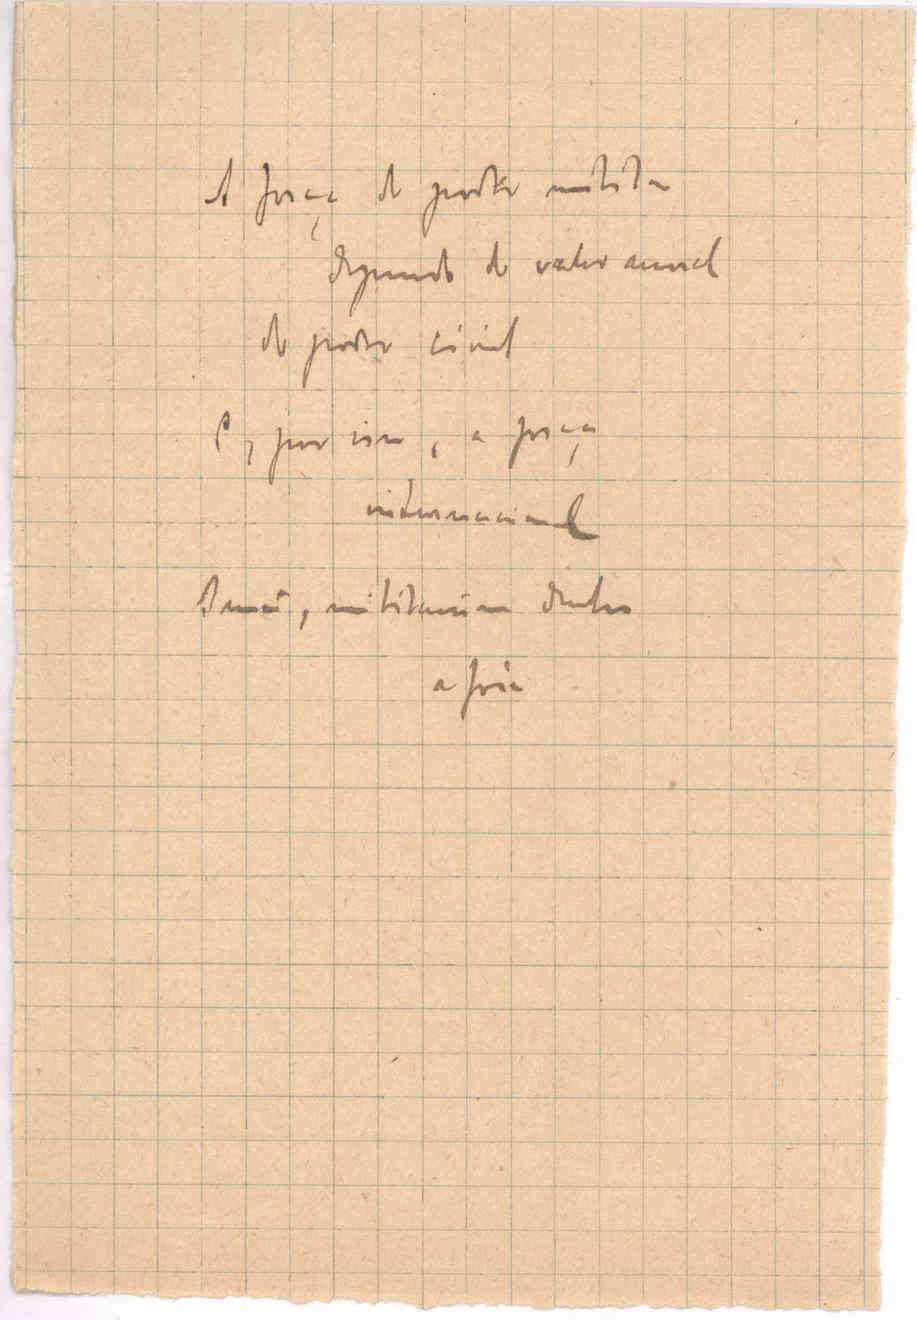 A força do poder militar
depende do valor moral
do poder civil
e, por isso, a força
internacional
Senão, militarismo dentro
e fora